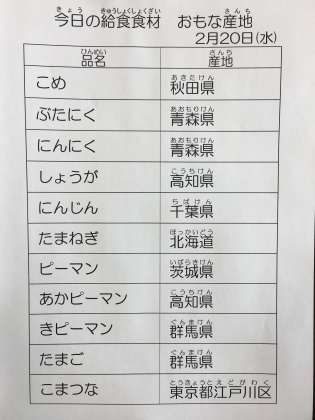 今日の給食食材 おもな産地
2月20日(水)
品名 産地
こめ 秋田県
ぶたにく 青森県
にんにく 青森県
しょうが 高知県
にんじん 千葉県
たまねぎ 北海道
ピーマン 茨城県
あかピーマン 高知県
きピーマン 群馬県
たまご 群馬県
こまつな 東京都江戸川区